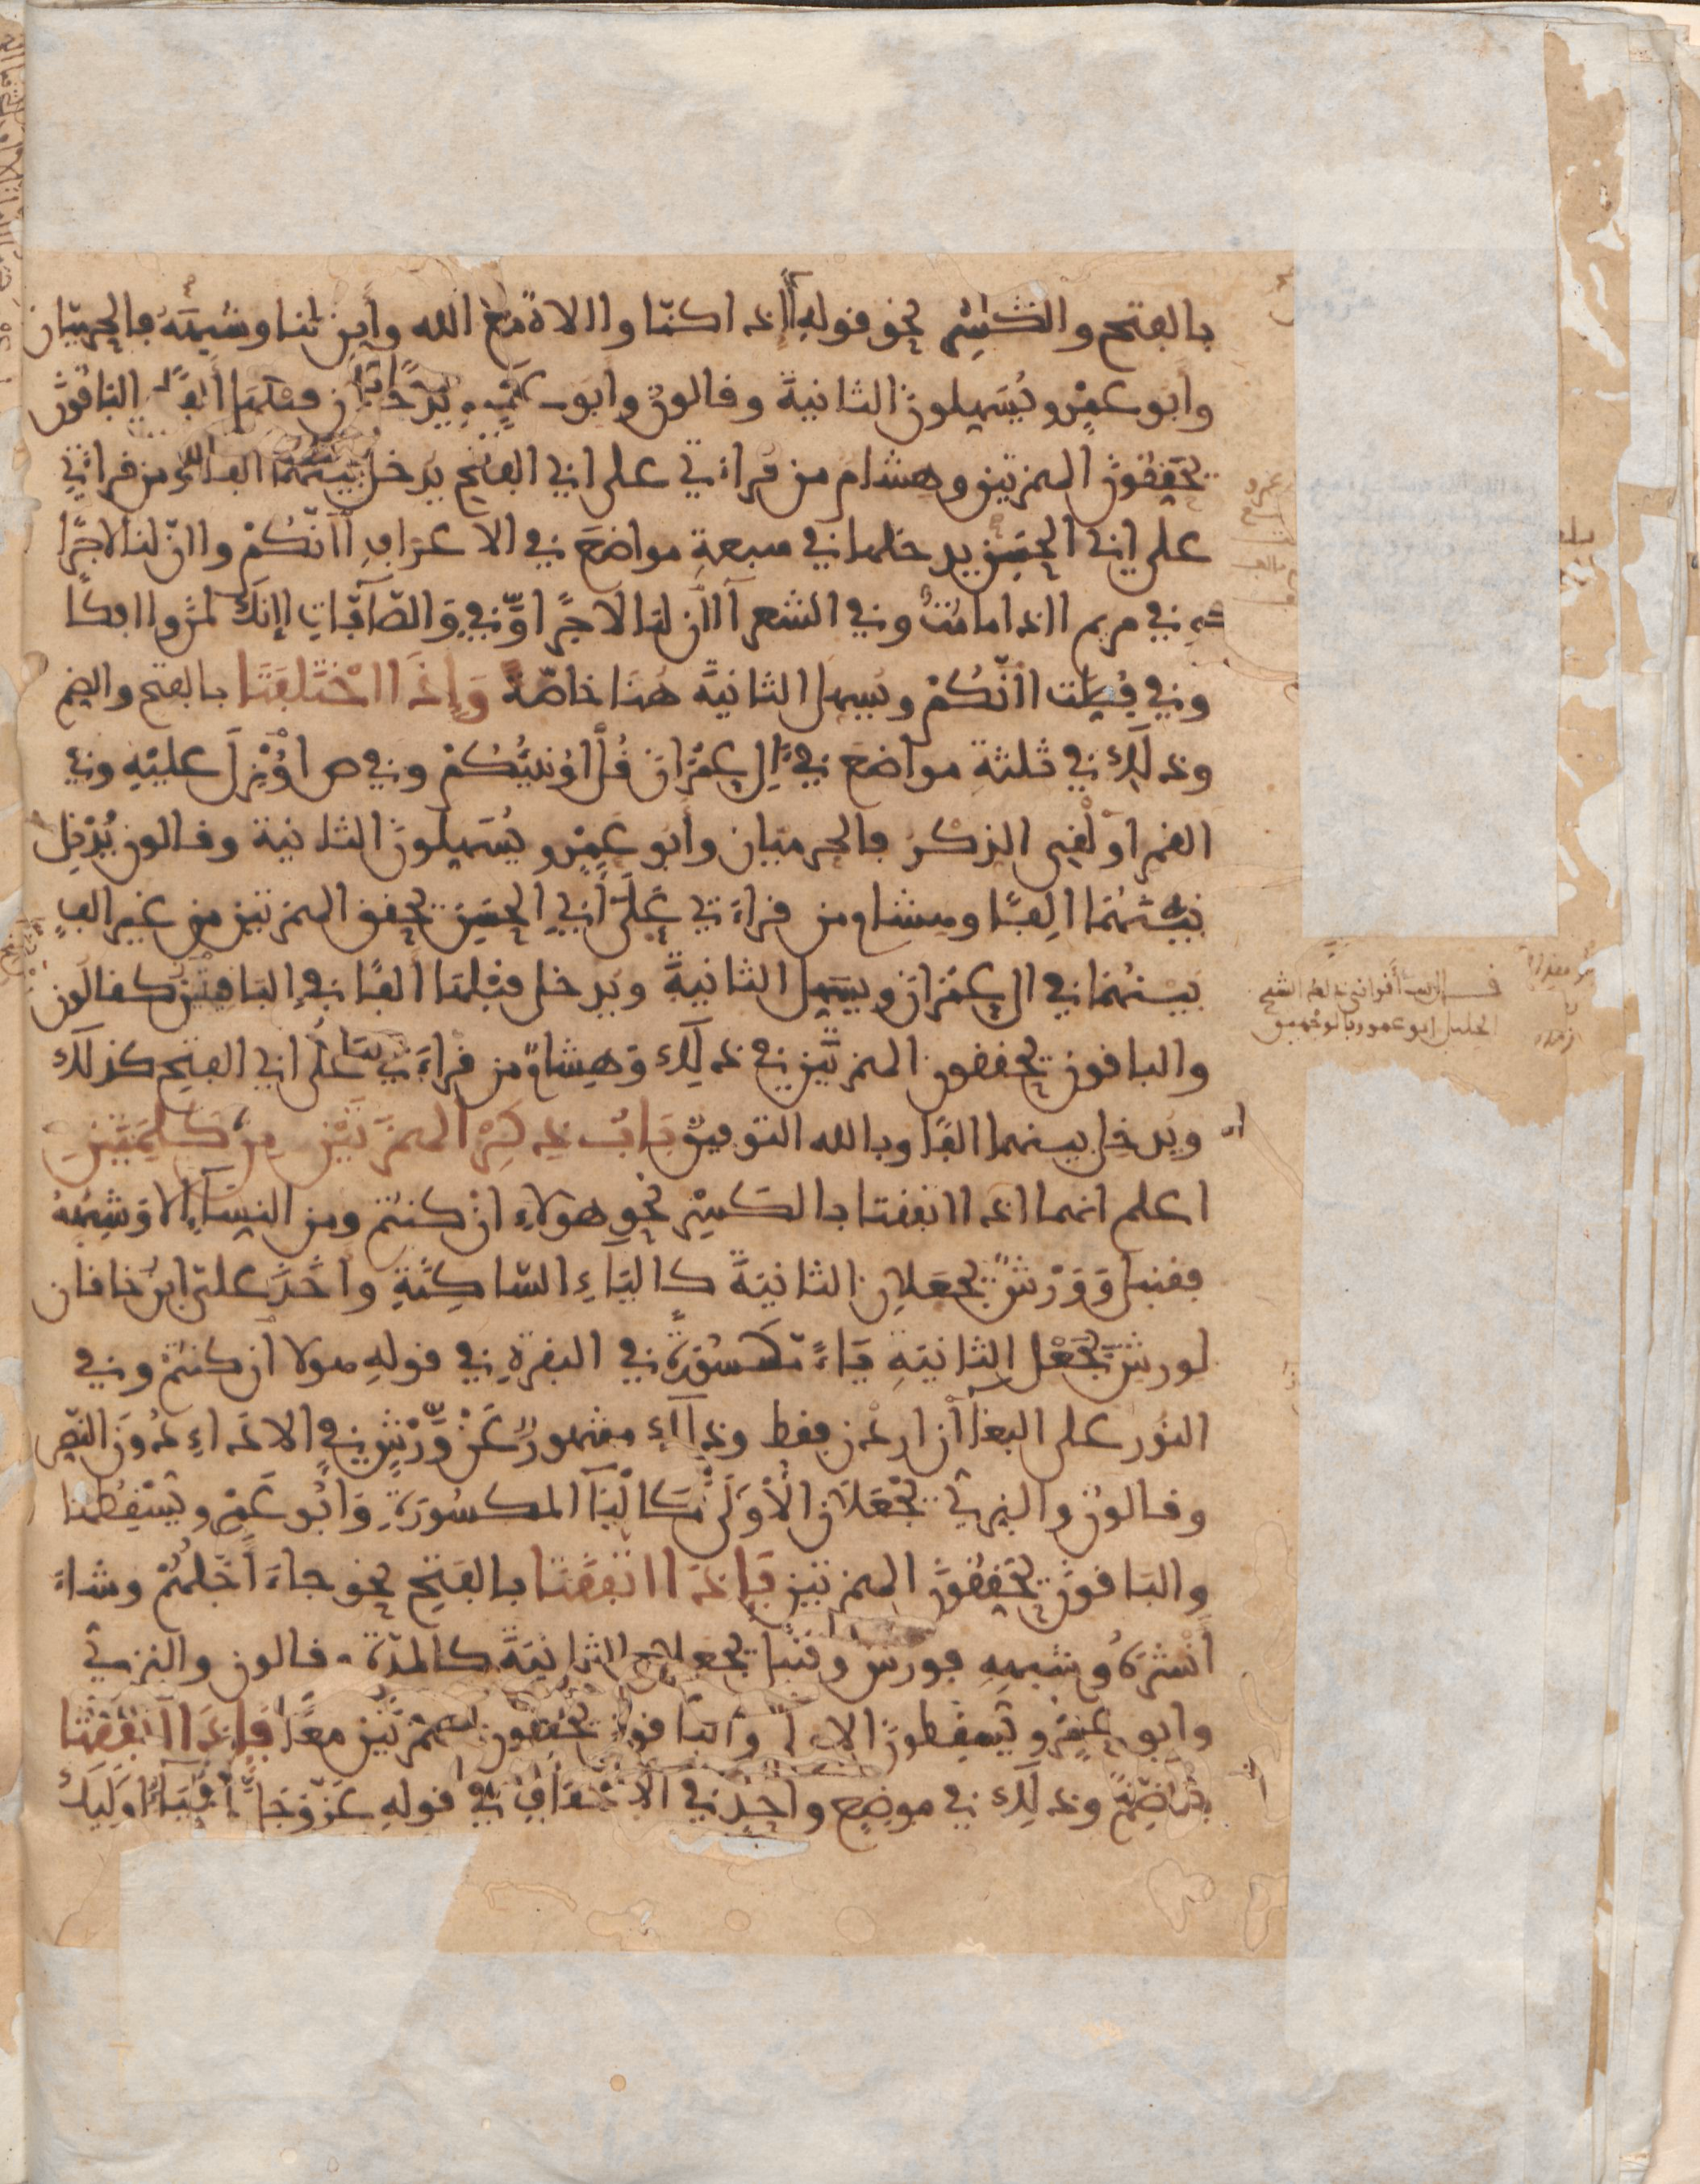 بالفتح والكسر نحو قوله أاذا كنا واالاه مع الله وأين لنا وشبهه فالحرميان
وأبو عمرو يسهلون الثانية وقالون وأبو عمرو يدخلان قبلها ألفا والباقون
يحققون الهمزتين وهشام من قراءتي على ابي الفتح يدخل بينهما الفا ومن قراءتي
على ابي الحسن يدخلها في سبعة مواضع في الاعراف اانكم واان لنا لاجرا
وفي مريم ااذا ما مت وفي الشعرا اان لنا لاجرا وفي والصافات اانك لمن واافكا
وفي فصلت اانكم ويسهل الثانية هنا خاصة وإذا اختلفتا بالفتح والضم
وذلك في ثلثة مواضع في ال عمران قل اؤنبئكم وفي ص اؤنزل عليه وفي
القمر اولقي الذكر فالحرميان وأبو عمرو يسهلون الثانية وقالون يدخل
بينهما الفا وهشام من قراءتي على أبي الحسن يحقق الهمزتين من غير الف
بينهما في ال عمران ويسهل الثانية ويدخل قبلها ألفا في الباقيتين كقالون
والباقون يحققون الهمزتين في ذلك وهشام من قراءتي على ابي الفتح كذلك
ويدخل بينهما الفا وبالله التوفيق باب ذكر الهمزتين من كلمتين
اعلم انهما اذا اتفقتا بالكسر نحو هولاء ان كنتم ومن النساء الا وشبهه
فقنبل وورش يجعلان الثانية كالياء الساكنة وأخذ علي ابن خاقان
لورش بجعل الثانية ياء مكسورة في البقرة في قوله هولا ان كنتم وفي
النور على البغا ان اردن فقط وذلك مشهور عن ورش في الاداء دون النص
وقالون والبزي يجعلان الأولى كاليا المكسورة وأبو عمرو يسقطها
والباقون يحققون الهمزتين فإذا اتفقتا بالفتح نحو جاء أجلهم وشاء
أنشره وشبهه فورش وقنبل يجعلان الثانية كالمدة وقالون والبزي
وابو عمرو يسقطون الاولى والباقون يحققون الهمزتين معا فإذا اتفقتا
بالضم وذلك في موضع واحد في الاحقاف في قوله عز وجل أولياء اوليك